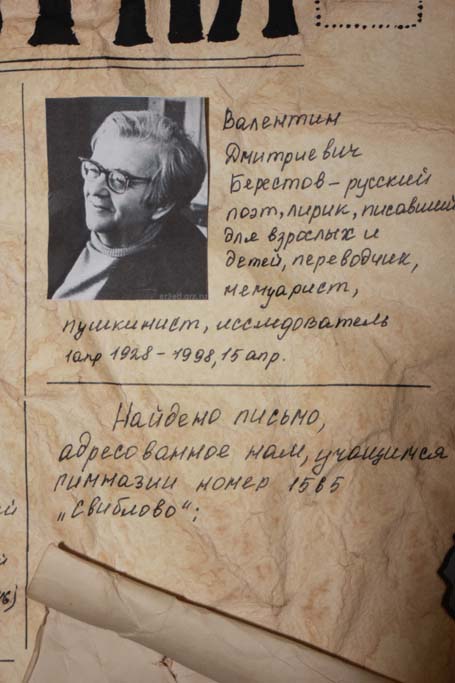 Валентин
Дмитриевич
Берестов – русский
поэт, лирик, писавший
для взрослых и
детей, переводчик,
мемуарист,
пушкинист, исследователь
1 апр 1928 – 1998, 15 апр.
Найдено письмо,
адресованное нам, учащимся
гимназии номер 1565
„Свиблово“: